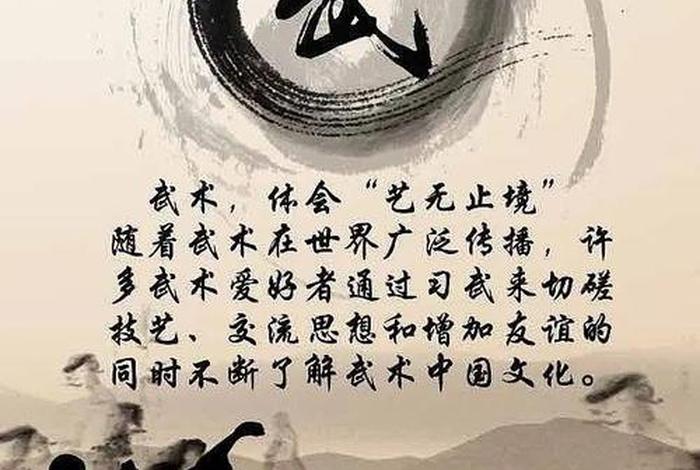 武
武术，体会“艺无止境”
随着武术在世界广泛传播，许
多武术爱好者通过习武来切磋
技艺、交流思想和增加友谊的
同时不断了解武术中国文化。